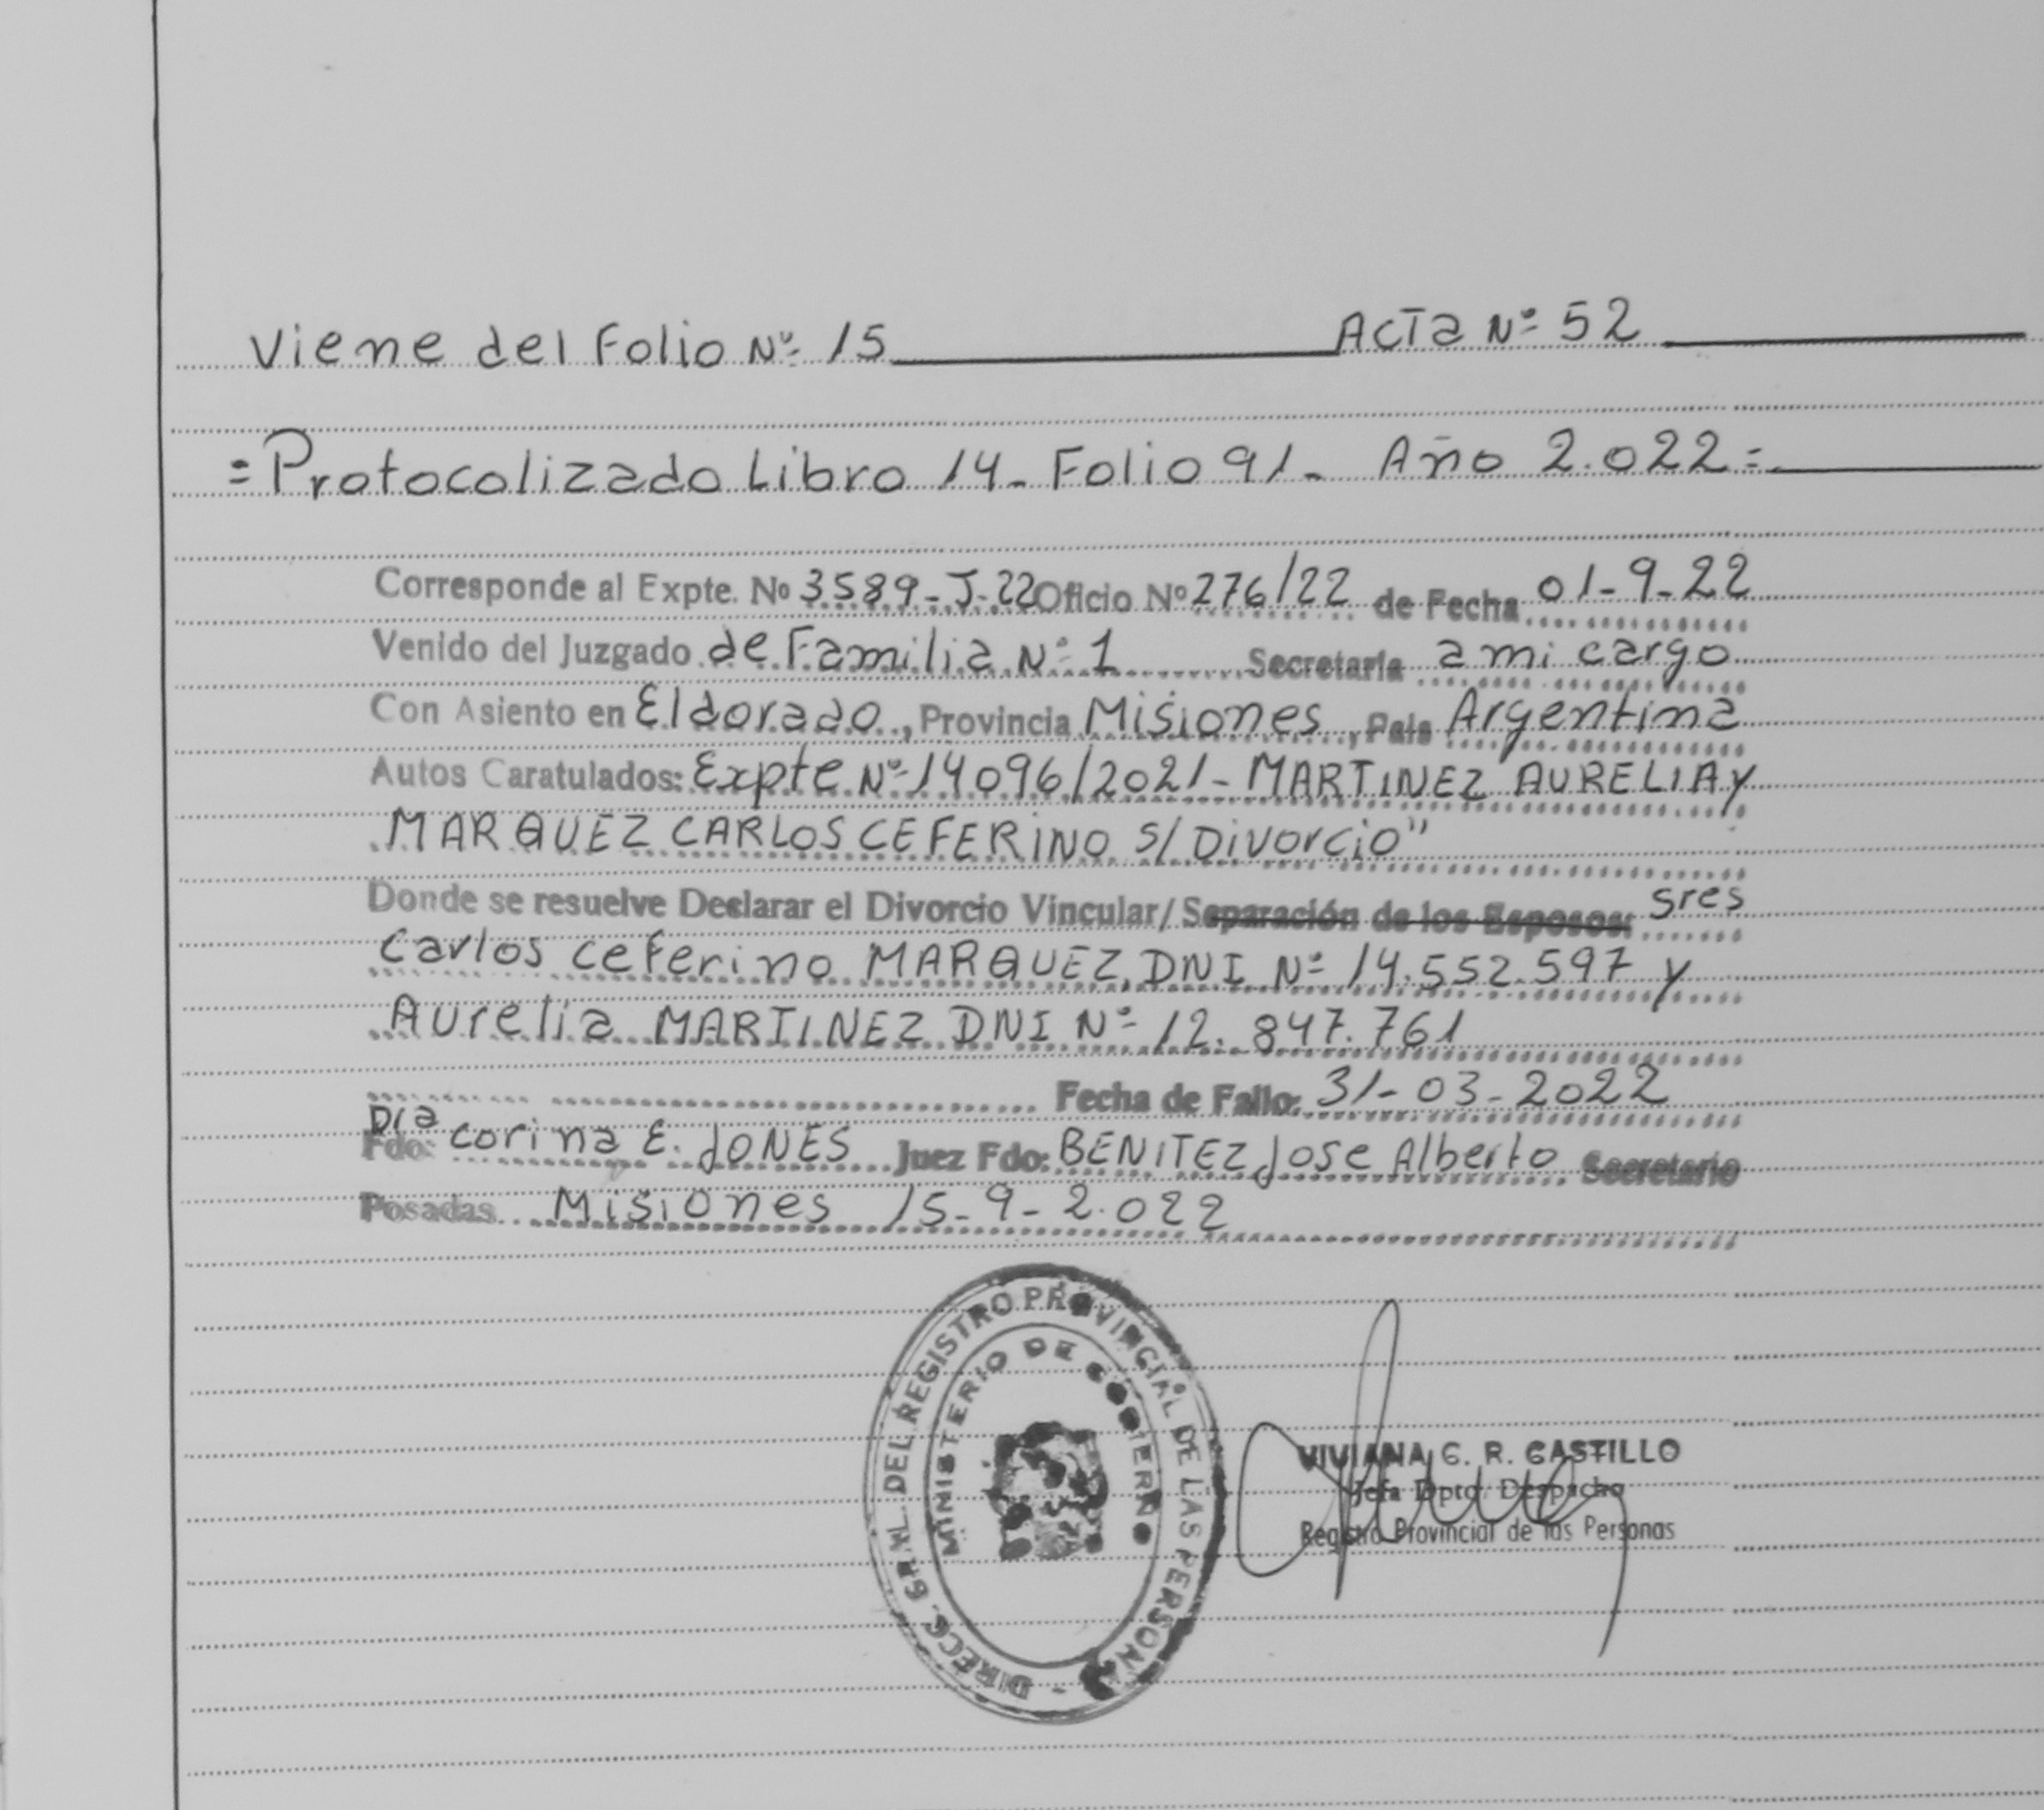 Viene del Folio Nº 15 Acta Nº 52
=Protocolizado Libro 14_ Folio 91_ Año 2.022=
Corresponde al Expte. Nº 3589-J-22 Oficio Nº 276/22 de Fecha 01-9-22
Venido del Juzgado de Familia Nº 1 Secretaria a mi cargo
Con Asiento en Eldorado, Provincia Misiones, Pais Argentina
Autos Caratulados: Expte Nº 14096/2021- MARTINEZ AURELIA y
MARQUEZ CARLOS CEFERINO S/Divorcio"
Donde se resuelve Declarar el Divorcio Vincular/Separación de los Esposos: sres
Carlos Ceferino MARQUEZ, DNI Nº 14.552.597 y
Aurelia MARTINEZ DNI Nº 12.847.761
Fecha de Fallo: 31-03-2022
Dra
Fdo: Corina E. JONES Juez Fdo: BENITEZ Jose Alberto Secretario
Posadas Misiones 15-9-2.022
DIRECC. GRAL. DEL REGISTRO PROVINCIAL DE LAS PERSONAS -
MINISTERIO DE GOBIERNO
VIVIANA C. R. CASTILLO
Jefa Dpto. Despacho
Registro Provincial de las Personas